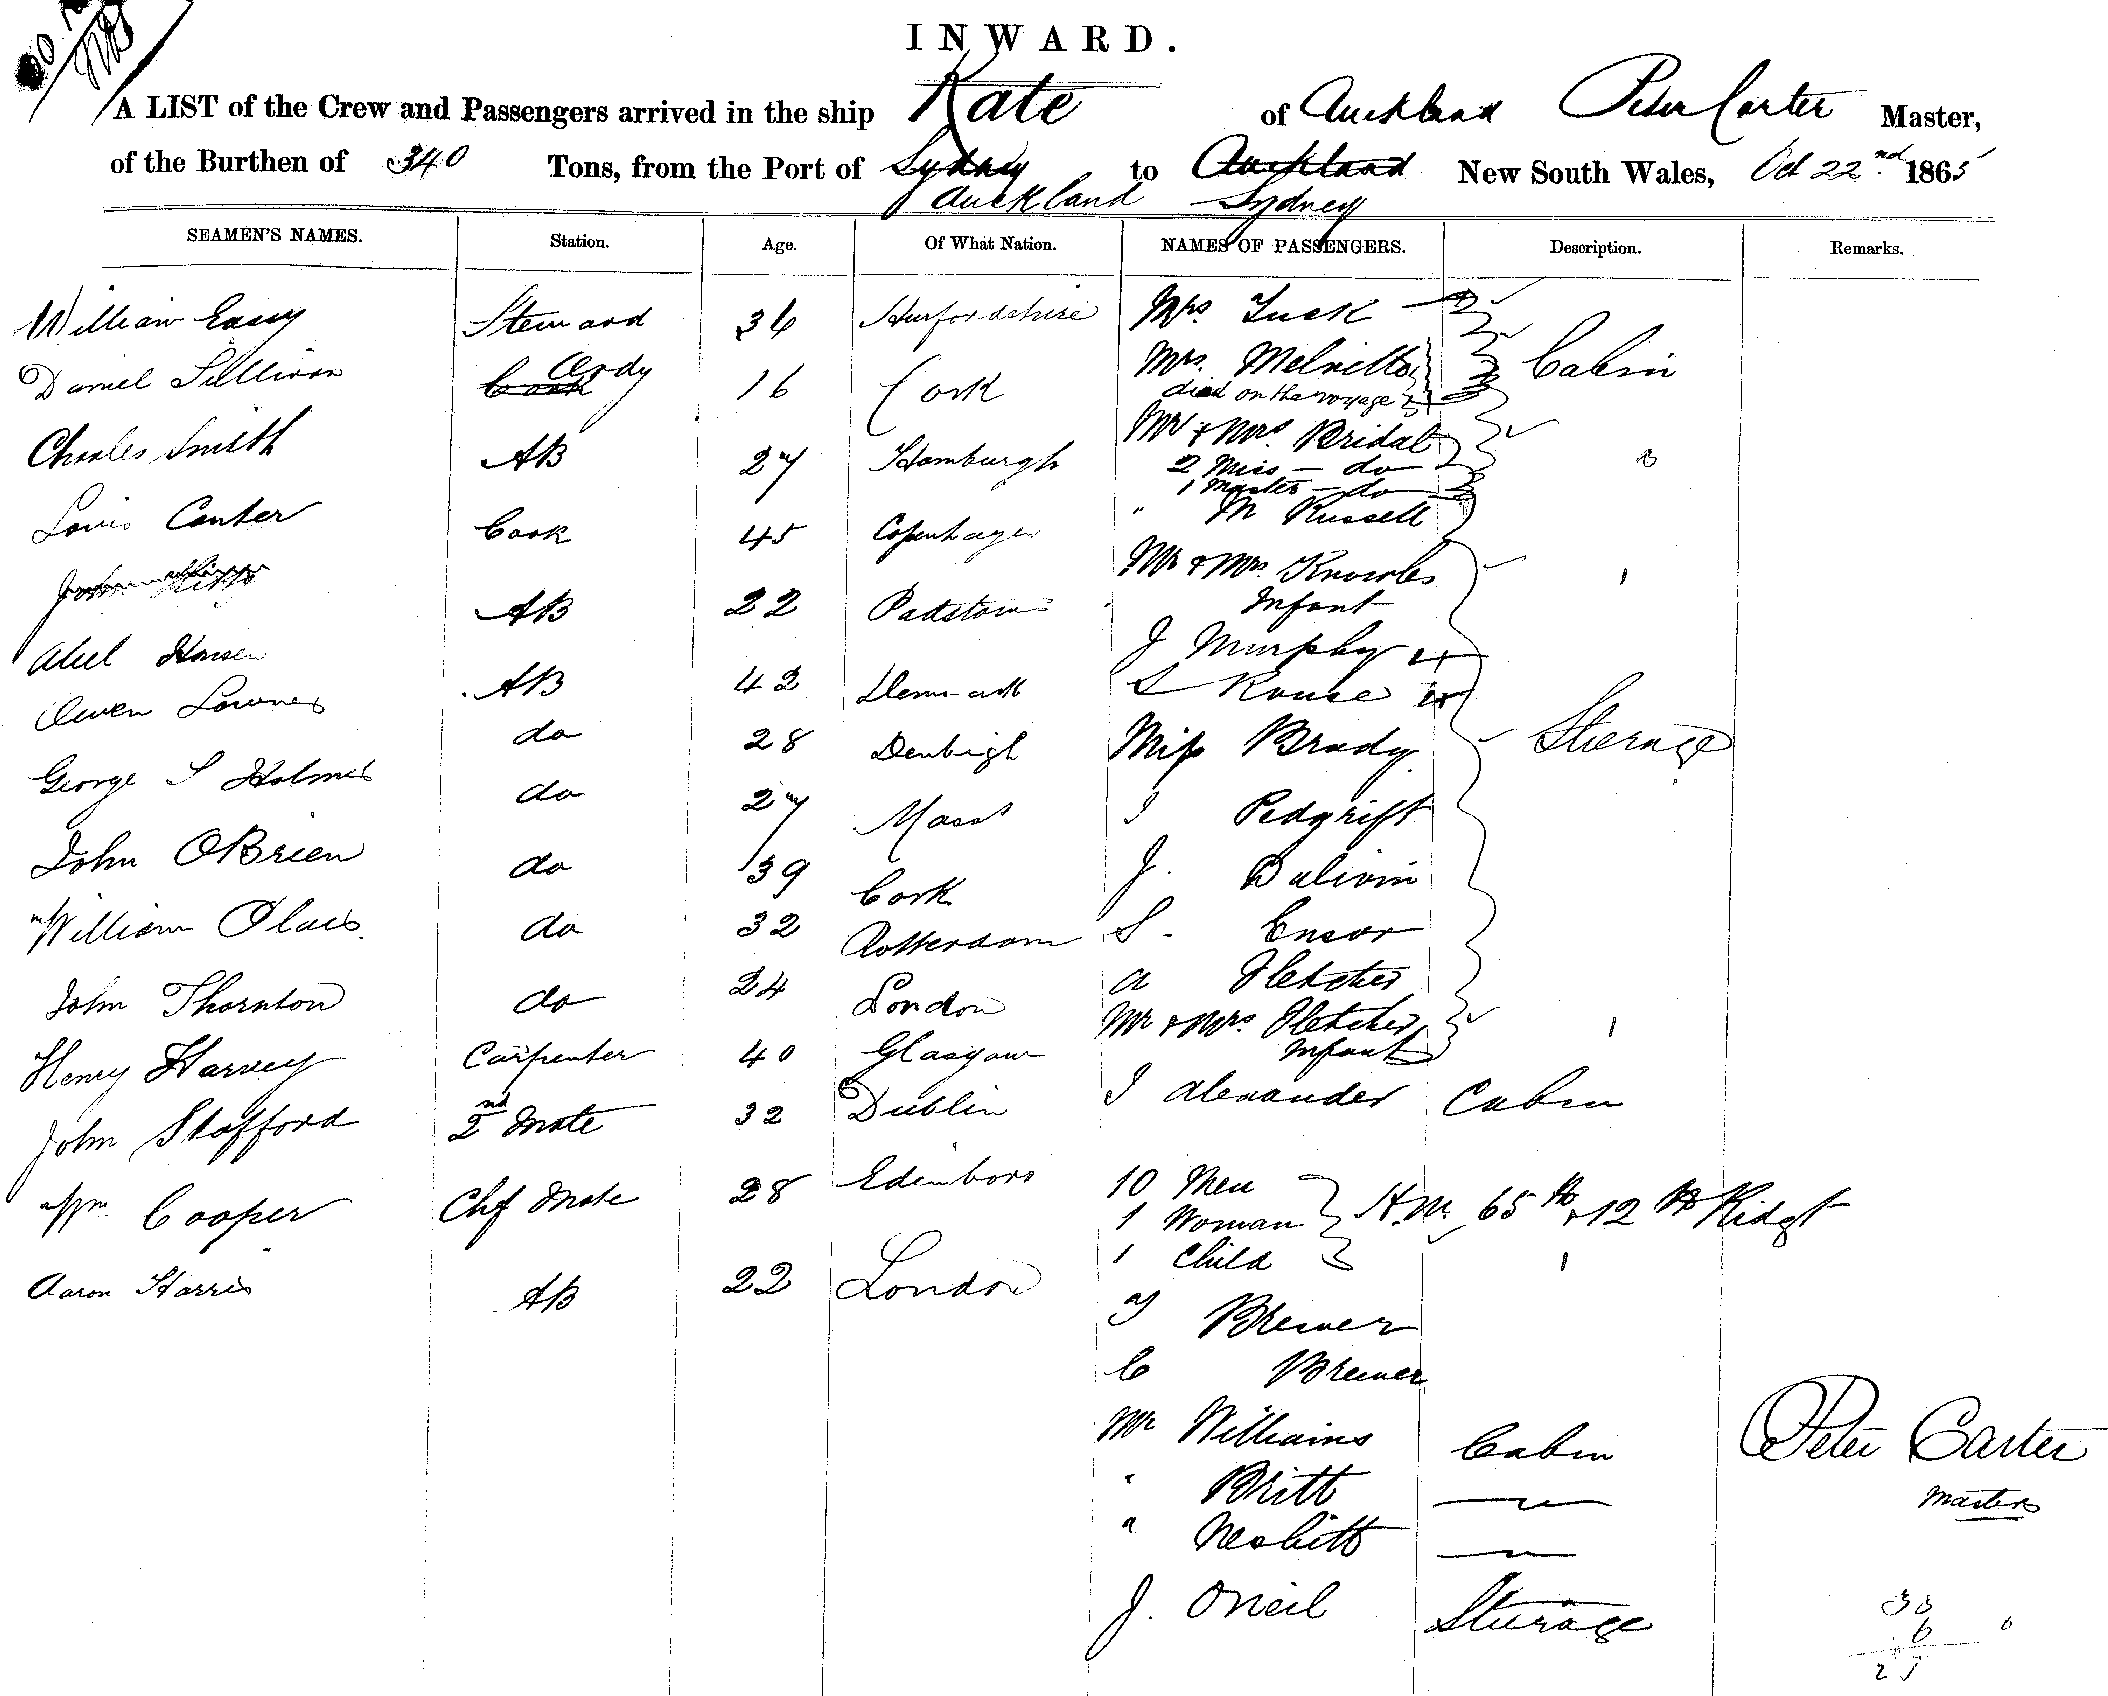 INWARD.
A LIST of the Crew and Passengers arrived in the ship Kate of Auckland Peter Carter Master,
of the Burthen of 340 Tons, from the Port of Sydney to Auckland New South Wales, Oct 22nd. 1865
Auckland Sydney
SEAMEN'S NAMES. Station. Age. Of What Nation. NAMES OF PASSENGERS. Description. Remarks.
William Steward 36 Hurfordshire Mrs. Tuck
Daniel Sullivan Cook Ordy 16 Cork Mrs. Cabin
died on the voyage
Charles Smith AB 27 Hamburgh Mr & Mrs. Bridal
2 Miss - do
1 Master - do
Louis Canter Cook 45 Copenhagen " Mr Russell
John AB 22 Padstow Mr & Mrs. Knowles
Infant
Abel Hansen AB 42 Denmark J Murphy
Owen Lownes do 28 Denbigh S Rouse
George S Holmes do 27 Mass Miss Brady Sturage
John OBrien do 39 Cork Pedgrift
William Claes do 32 Rotterdam J.
John Thornton do 24 London S. Ensor
A Fletcher
Henry Harvey Carpenter 40 Glasgow Mr & Mrs. Fletcher
Infant
John Stafford 2nd Mate 32 Dublin J Alexander Cabin
Wm. Cooper Chf Mate 28 Edinboro 10 Men
1 Woman H.M. 65th & 12th Ridgt
1 Child
Aaron Harris AB 22 London Brewer
C Brewer
Mr Williams Cabin
" Britt
" Nesbitt
Peter Carter
Master
J. ONeil Sturage